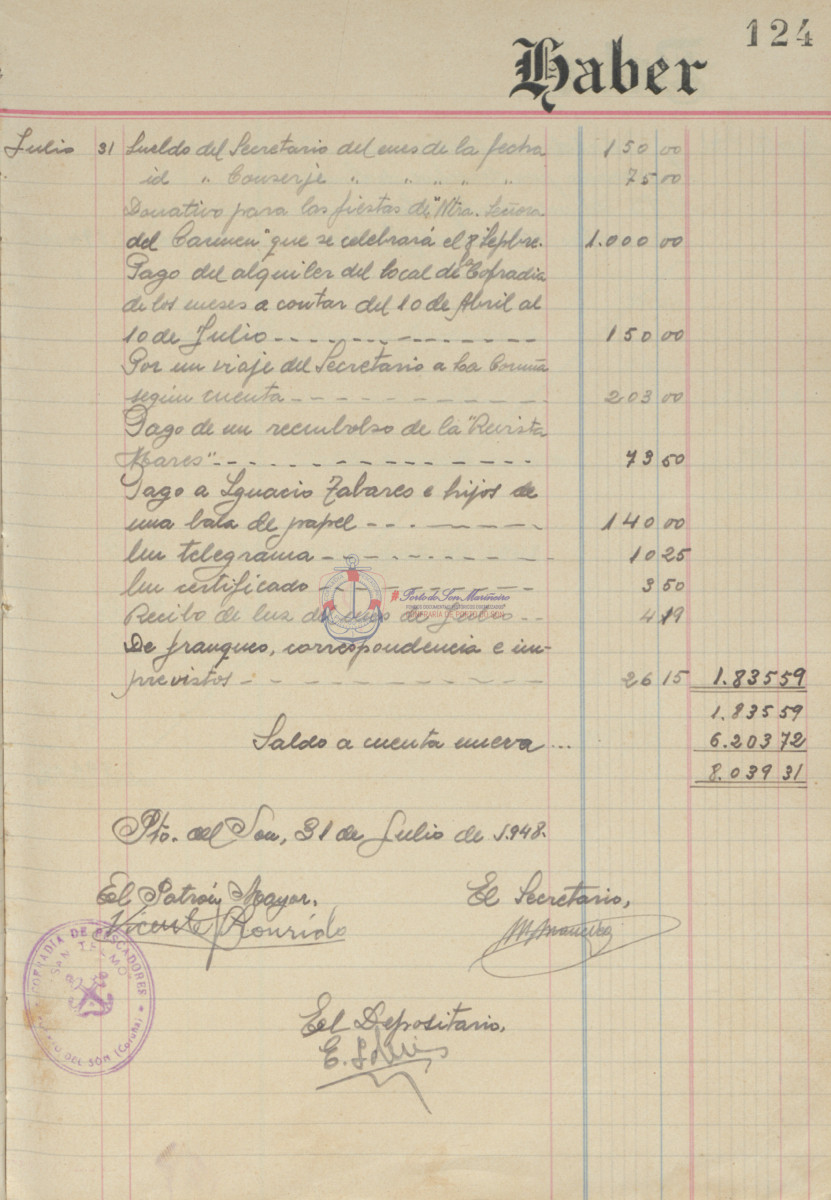 124
Haber
Julio 31 Sueldo del Secretario del mes de la fecha 150 00
id " Conserje " " " " " 75 00
Donativo para las fiestas de "Ntra. Señora
del Carmen" que se celebrará el 8 Sepbre. 1.000 00
Pago del alquiler del local de la Cofradia
de los meses a contar del 10 de Abril al
10 de Julio 150 00
Por un viaje del Secretario a La Coruña
según cuenta 203 00
Pago de un reembolso de la "Revista
Mares" 73 50
Pago a Ignacio Tabares e hijos de
una bala de papel 140 00
Un telegrama 10 25
Un certificado 3 50
Recibo de luz del mes de Julio 4 19
De franqueo, correspondencia e im-
previstos 26 15 1.835 59
1.835 59
Saldo a cuenta nueva... 6.203 72
8.039 31
Pto. del Son, 31 de Julio de 1.948.
El Patrón Mayor, El Secretario,
Vicente Romrído
El Depositario,
COFRADIA DE PESCADORES
SAN TELMO
PUERTO DEL SON (Coruña)
Porto do Son Mariñeiro